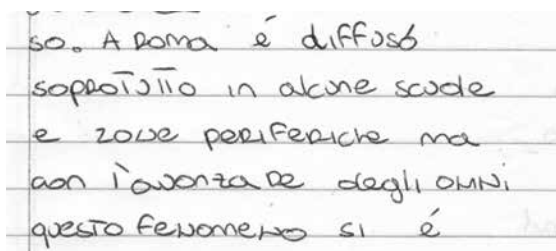 so. A Roma é diffusó
sopratutto in alcune scuole
e zone periferiche ma
con l'avanzare degli anni
questo fenomeno si é